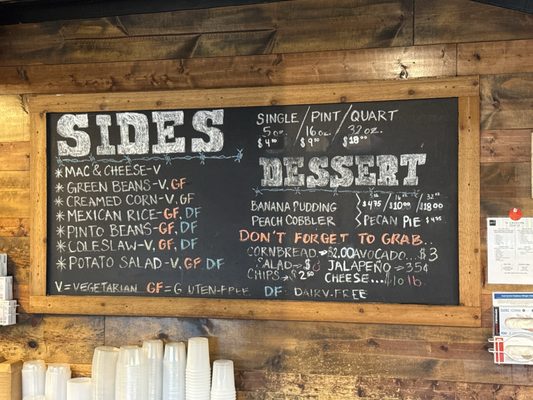 SIDES
* MAC & CHEESE-V
* GREEN BEANS-V. GF
* CREAMED CORN-V. GF
* MEXICAN RICE-GF. DF
* PINTO BEANS-GF. DF
* COLESLAW-V. GF. DF
* POTATO SALAD-V. GF. DF
V = VEGETARIAN GF = GLUTEN-FREE DF = DAIRY-FREE
SINGLE / PINT / QUART
5oz. / 16oz. / 32oz.
$4.00 $9.00 $18.00
DESSERT
5oz 16oz 32oz
BANANA PUDDING $4.75 / $10.00 / $18.00
PEACH COBBLER PECAN PIE $4.95
DON'T FORGET TO GRAB..
CORNBREAD=$2.00 AVOCADO...$3
SALAD=$ JALAPEÑO=35¢
CHIPS=$2.50 CHEESE...$10 lb.